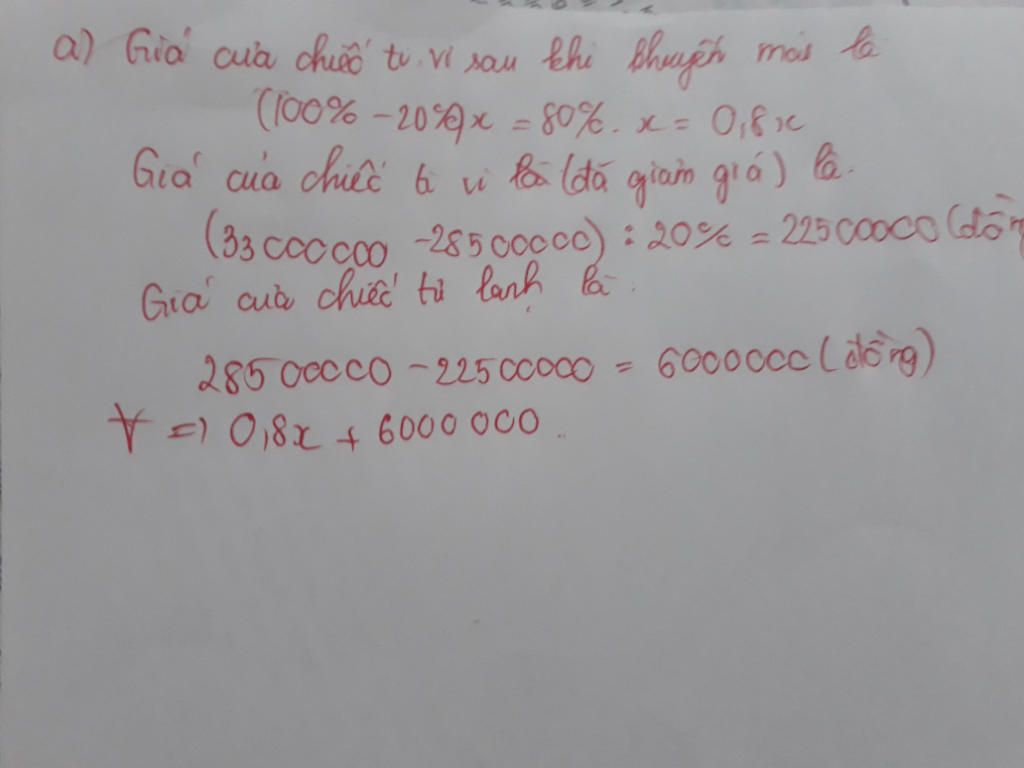 a) Giá của chiếc ti vi sau khi khuyến mãi là
(100% - 20%)x = 80%. x = 0,8x
Giá của chiếc ti vi là (đã giảm giá) là.
(33000000 - 28500000) : 20% = 22500000 (đồng
Giá của chiếc tủ lạnh là:
28500000 - 22500000 = 6000000 (đồng)
∀ => 0,8x + 6000 000 ..